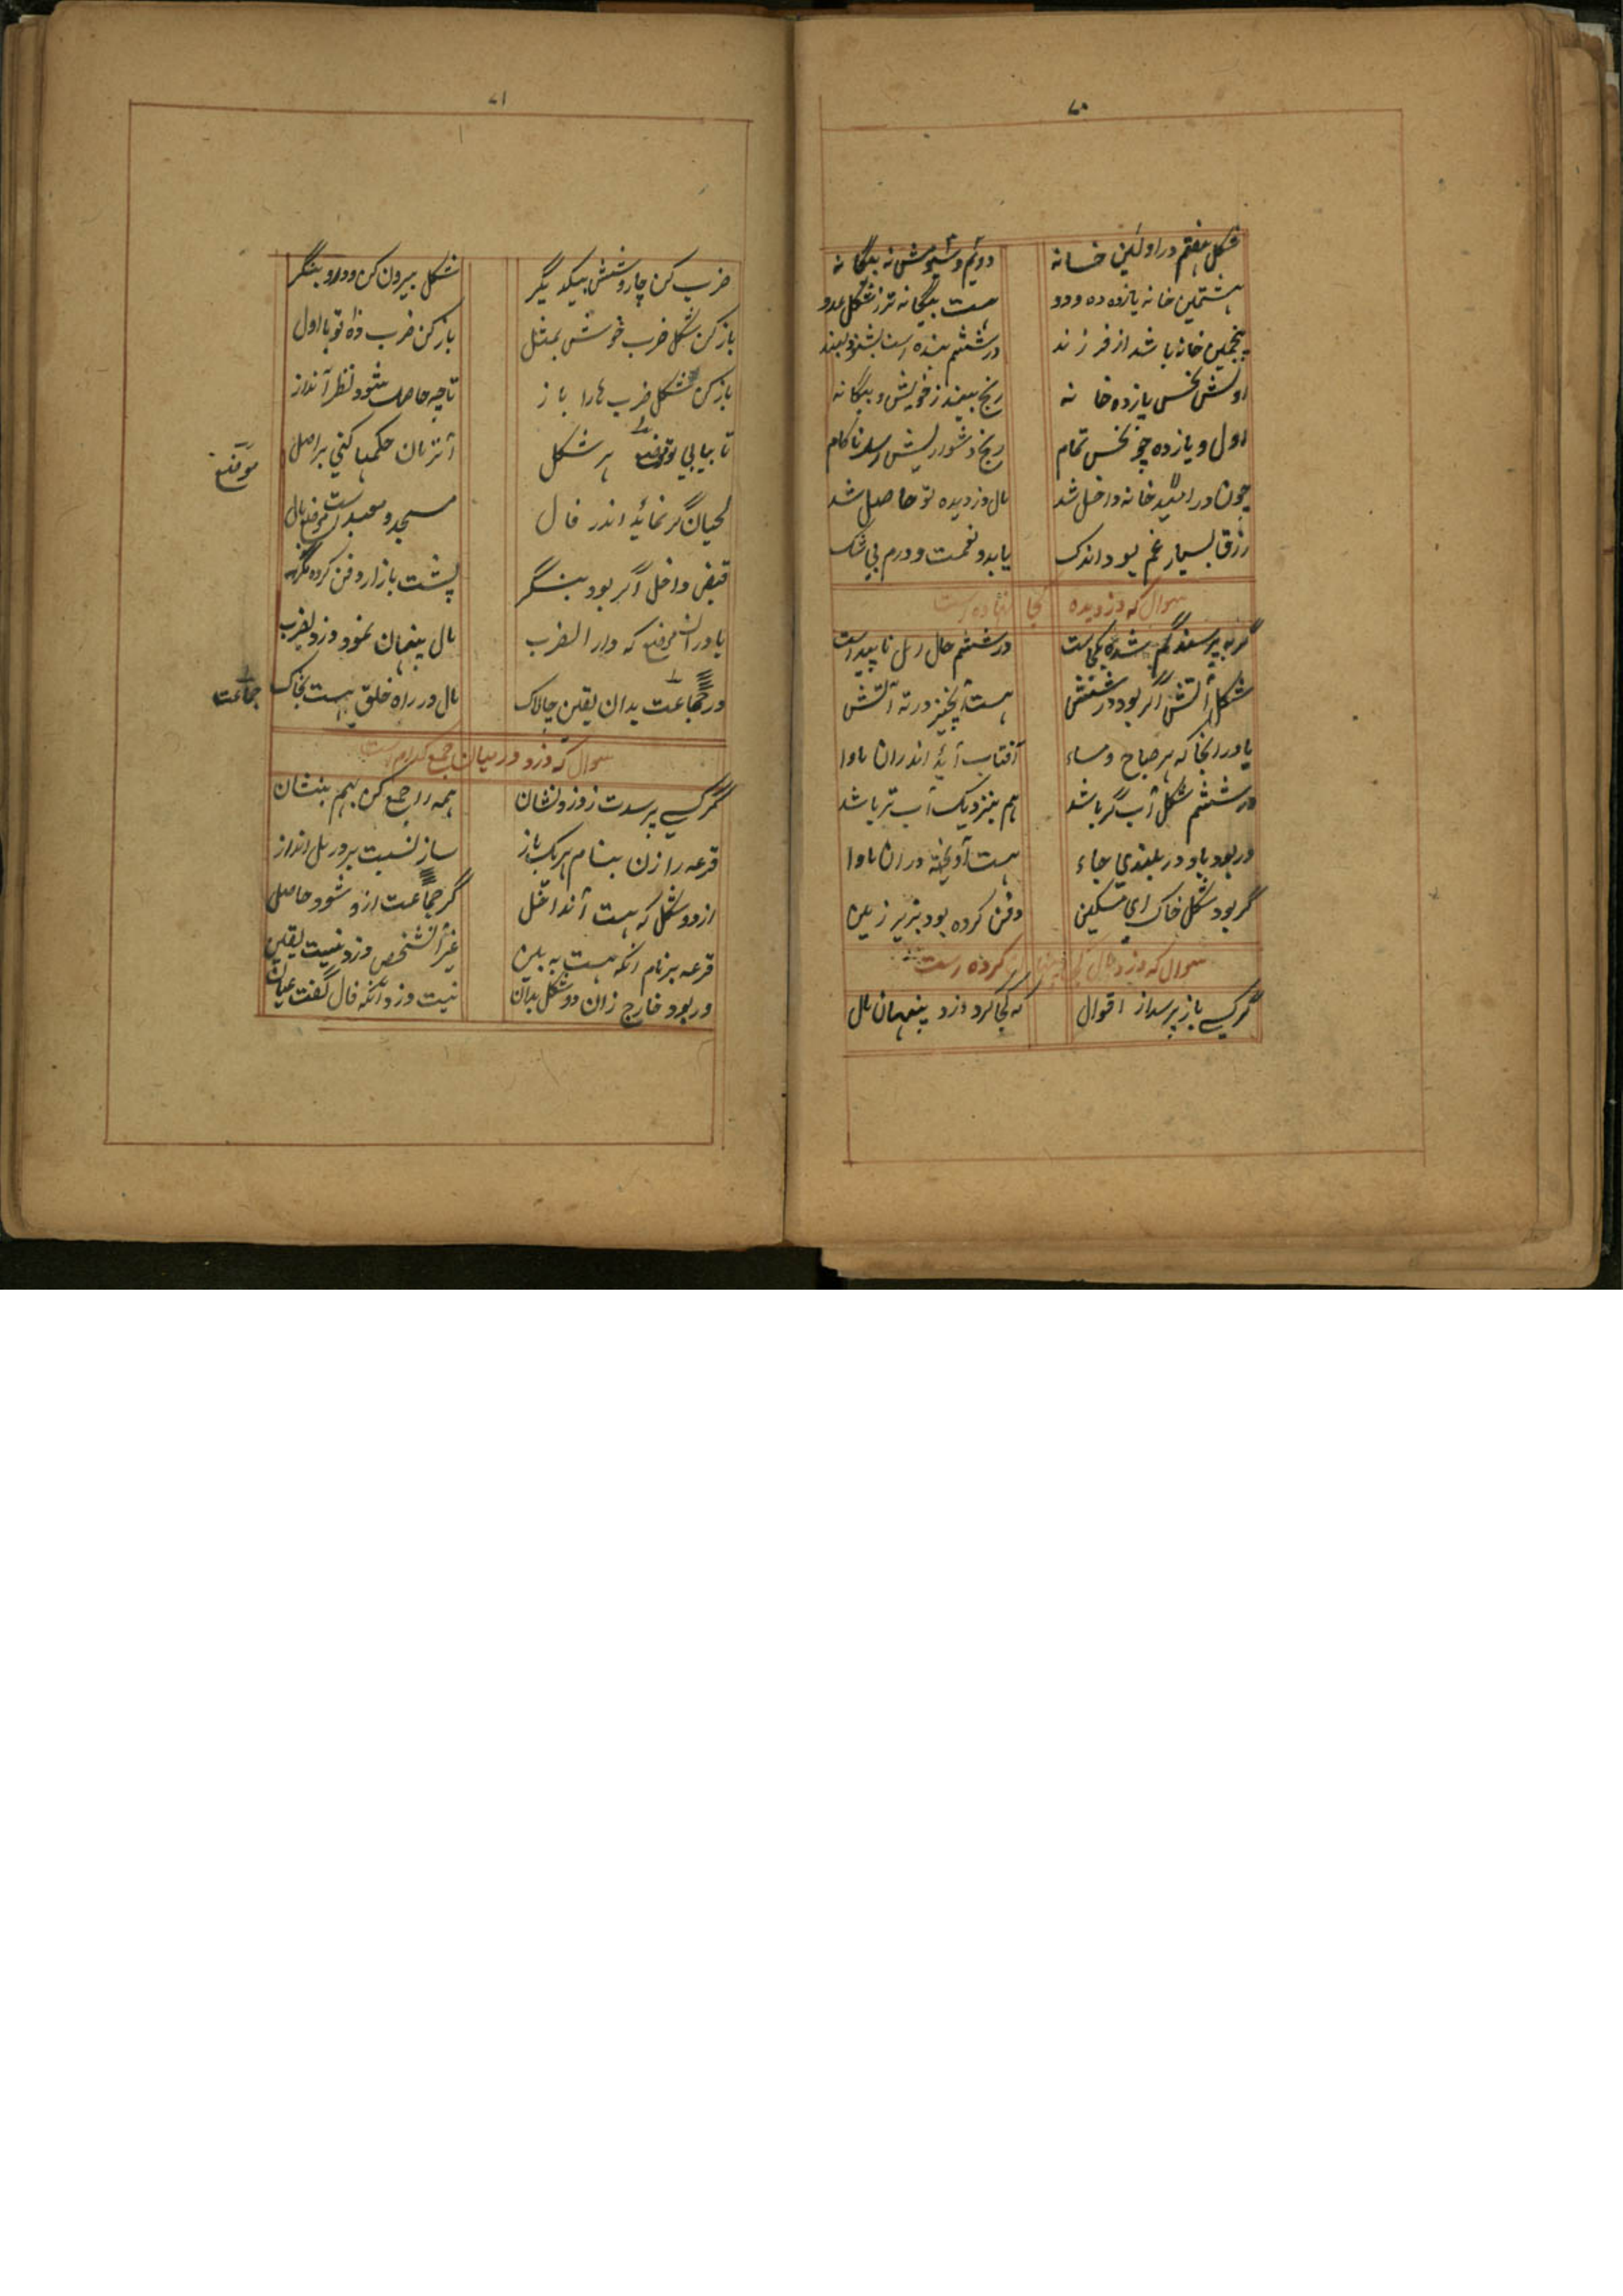 ۷۰
شکل هفتم در اولین خانه دویم و سیومش نه بیگانه
هشتمین خانه یازده ده و دو هست بیگانه تر ز شکل عدو
پنجمین خانه باشد از فرزند در ششم بنده
اولش نحس یازده خانه رنج بیند ز خویش و بیگانه
اول و یازده چو نحس تمام رنج دشوار پیش ناکام
چون در امید خانه داخل شد مال دزدیده تو حاصل شد
رزق بسیار غم بود اندک یابد و نعمت و درم بی شک
سوال که دزدیده کجا نهاده است
گر بپرسند گم شده بکجاست در ششم حال رمل ناپیداست
شکل آتش اگر بود در شش هست آن چیز در ته آتش
یا در انجا که هر صباح و مساء آفتاب آید اندران ماوا
در ششم شکل آب گر باشد هم بنزدیک آب تر باشد
ور بود باد در بلندی جاء هست آویخته دران ماوا
گر بود شکل خاک ای مسکین دفن کرده بود بزیر زمین
سوال که دزد مال کجا پنهان کرده است
گر کسی باز پرسد از اقوال که کجا کرد دزد پنهان مال
۷۱
ضرب کن چار و شش بیکدیگر شکل بیرون کن و درو بنگر
باز کن شکل ضرب خوش بمثل باز کن ضرب تو با اول
باز کن شکل ضرب ها را باز تا چه حاصل شود نظر انداز
تا بیابی موقع هر شکل حکمها کنی بر اصل
موقع
لحیان گر نماید اندر فال مسجد و معبد است موقع مال
قبض داخل اگر بود بنگر پشت بازار دفن کرده مگر
یا دران موقع که دار الضرب مال پنهان نمود دزد بضرب
ور جماعت بدان یقین چالاک مال در راه خلق هست بخاک
جماعت
سوال که دزد در میان جمع کدام است
گر کسی پرسدت ز دزد نشان همه را جمع کن بهم بنشان
قرعه را زن بنام هر یک باز ساز نسبت برو رمل انداز
از دو شکل که هست گر جماعت ازو شود حاصل
قرعه بر نام آنکه هست به بین غیر آن شخص دزد نیست یقین
ور بود خارج زان دو شکل بدان نیست دزد آنکه فال گفت عیان